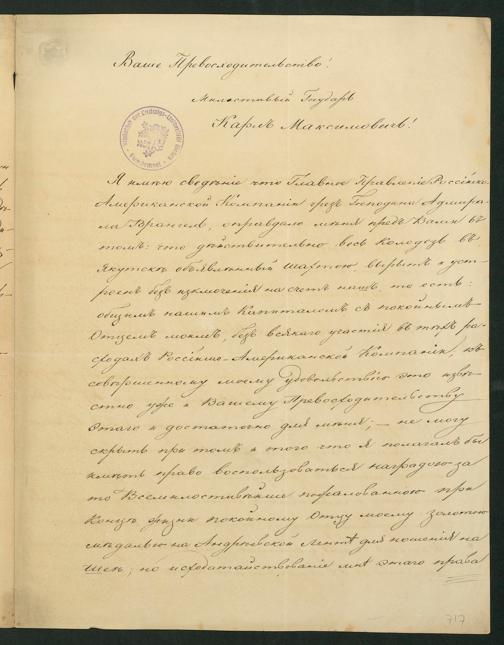 Ваше Превосходительство!
Милостивый Государь
Карлъ Максимовичъ!
Я имѣю сведѣніе что Главное Правленіе Россійско
Американской Компаніи чрезъ Господина Адмира-
ла Врангеля, оправдало меня предъ Вами въ
томъ: что дѣйствительно весь Колодезь въ
Якутскѣ объявленный Шахтою, вырытъ и уст-
роенъ безъ изключенія на счетъ нашъ, то есть:
общимъ нашимъ Капиталомъ съ покойнымъ
Отцемъ моимъ, безъ всякаго участія въ тѣхъ ра-
сходахъ Россійско-Американской Компаніи, къ
совершенному моему удовольствію это извѣ-
стно уже и Вашему Превосходительству
Этаго и достаточно для меня; — не могу
скрыть при томъ и того что я полагалъ бы
имѣть право воспользоваться наградою за
то Всемилостивѣйше пожалованною при
Концѣ жизни покойному Отцу моему золотою
медалью на Андреевской Лентѣ для ношенія на
Шеѣ; но исходатайствованіе мнѣ этаго права
717